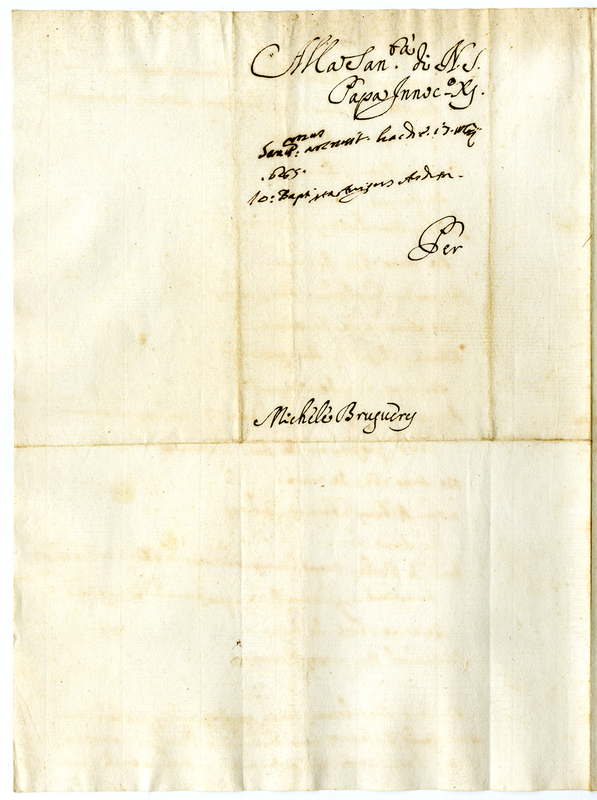 Alla San.tà di N. S.
Papa Innoc.o XI.
Sanct.mus annuit hac die 17. Maij
1685.
Io: Baptista
Per
Michele Bruguery